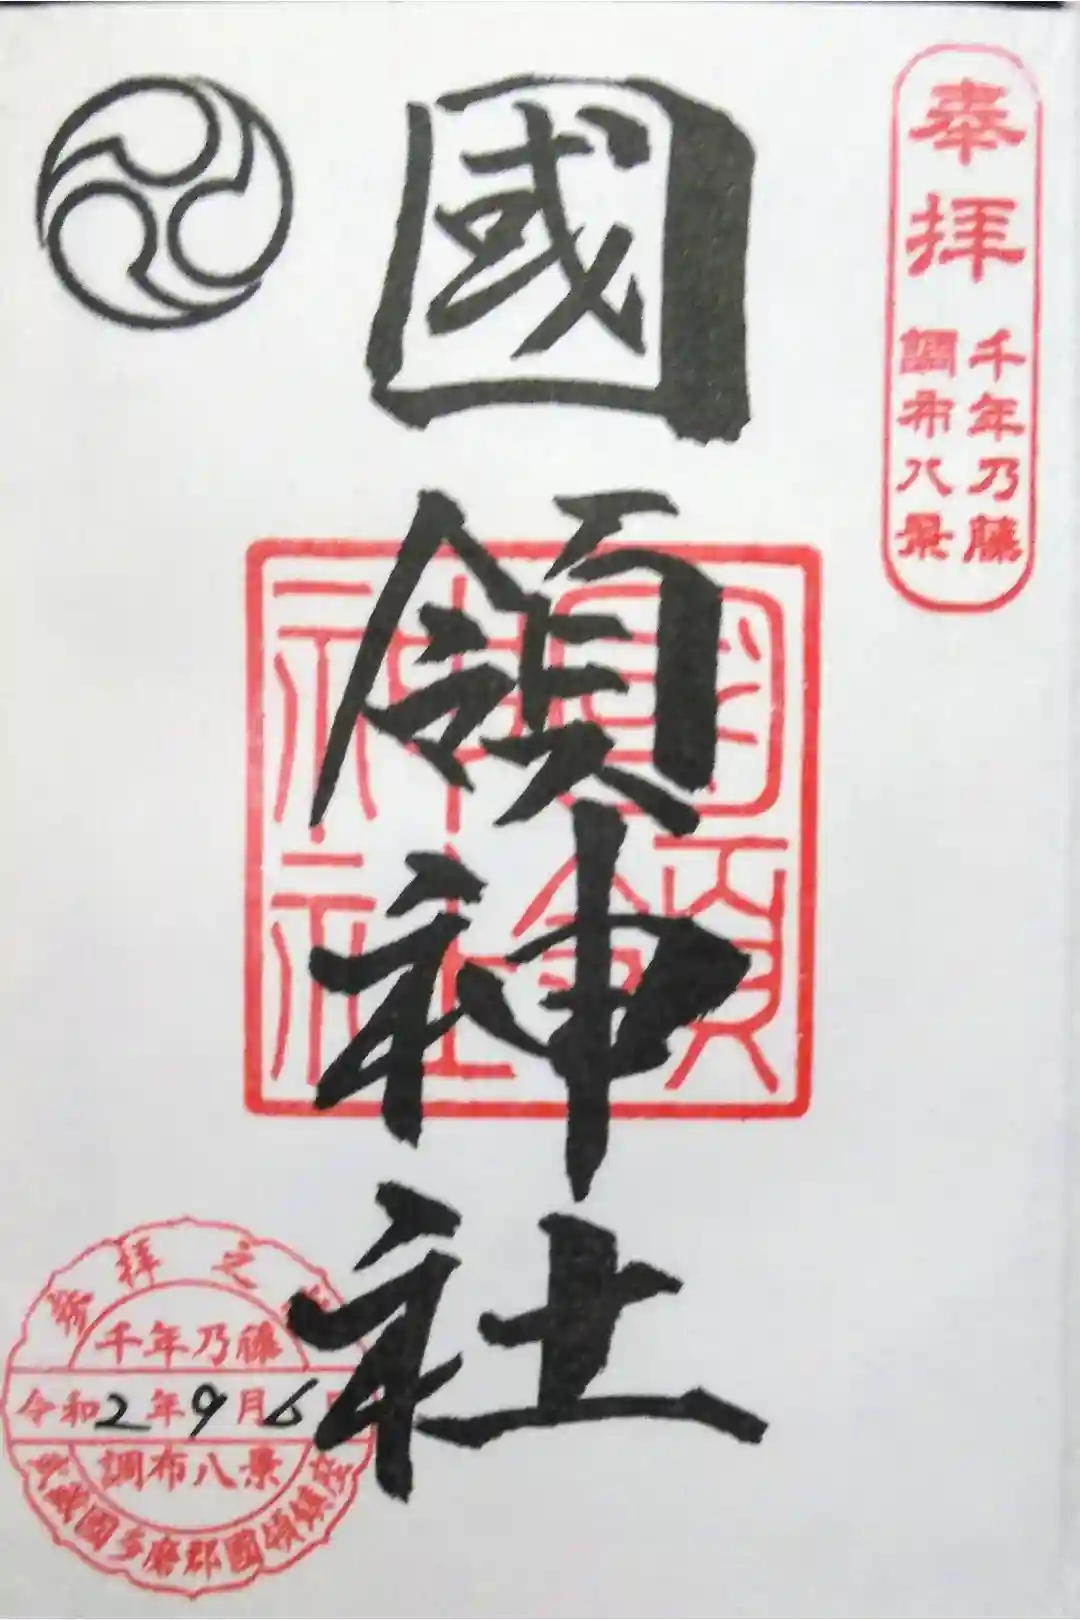 奉拝
千年乃藤
調布八景
國領神社
國領神社
千年乃藤
令和2年9月6日
調布八景
國多磨郡國領鎮座